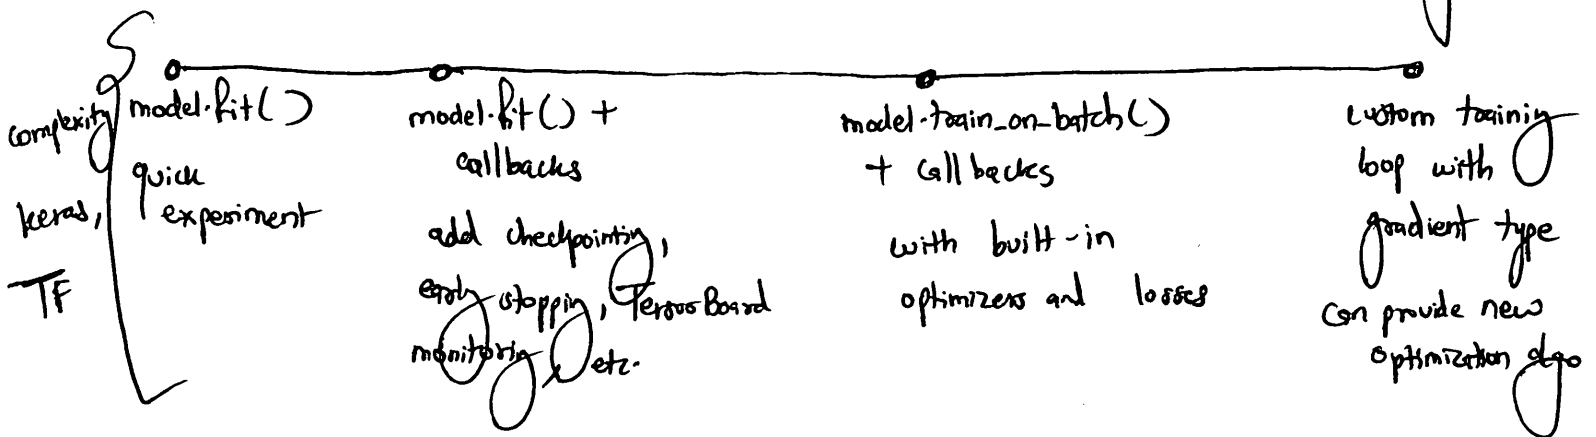 complexity
keras,
TF
model.fit()
quick
experiment
model.fit() +
callbacks
add checkpointing,
early stopping, TensorBoard
monitoring, etc.
model.train_on_batch()
+ callbacks
with built-in
optimizers and losses
custom training
loop with
gradient type
can provide new
optimization algo